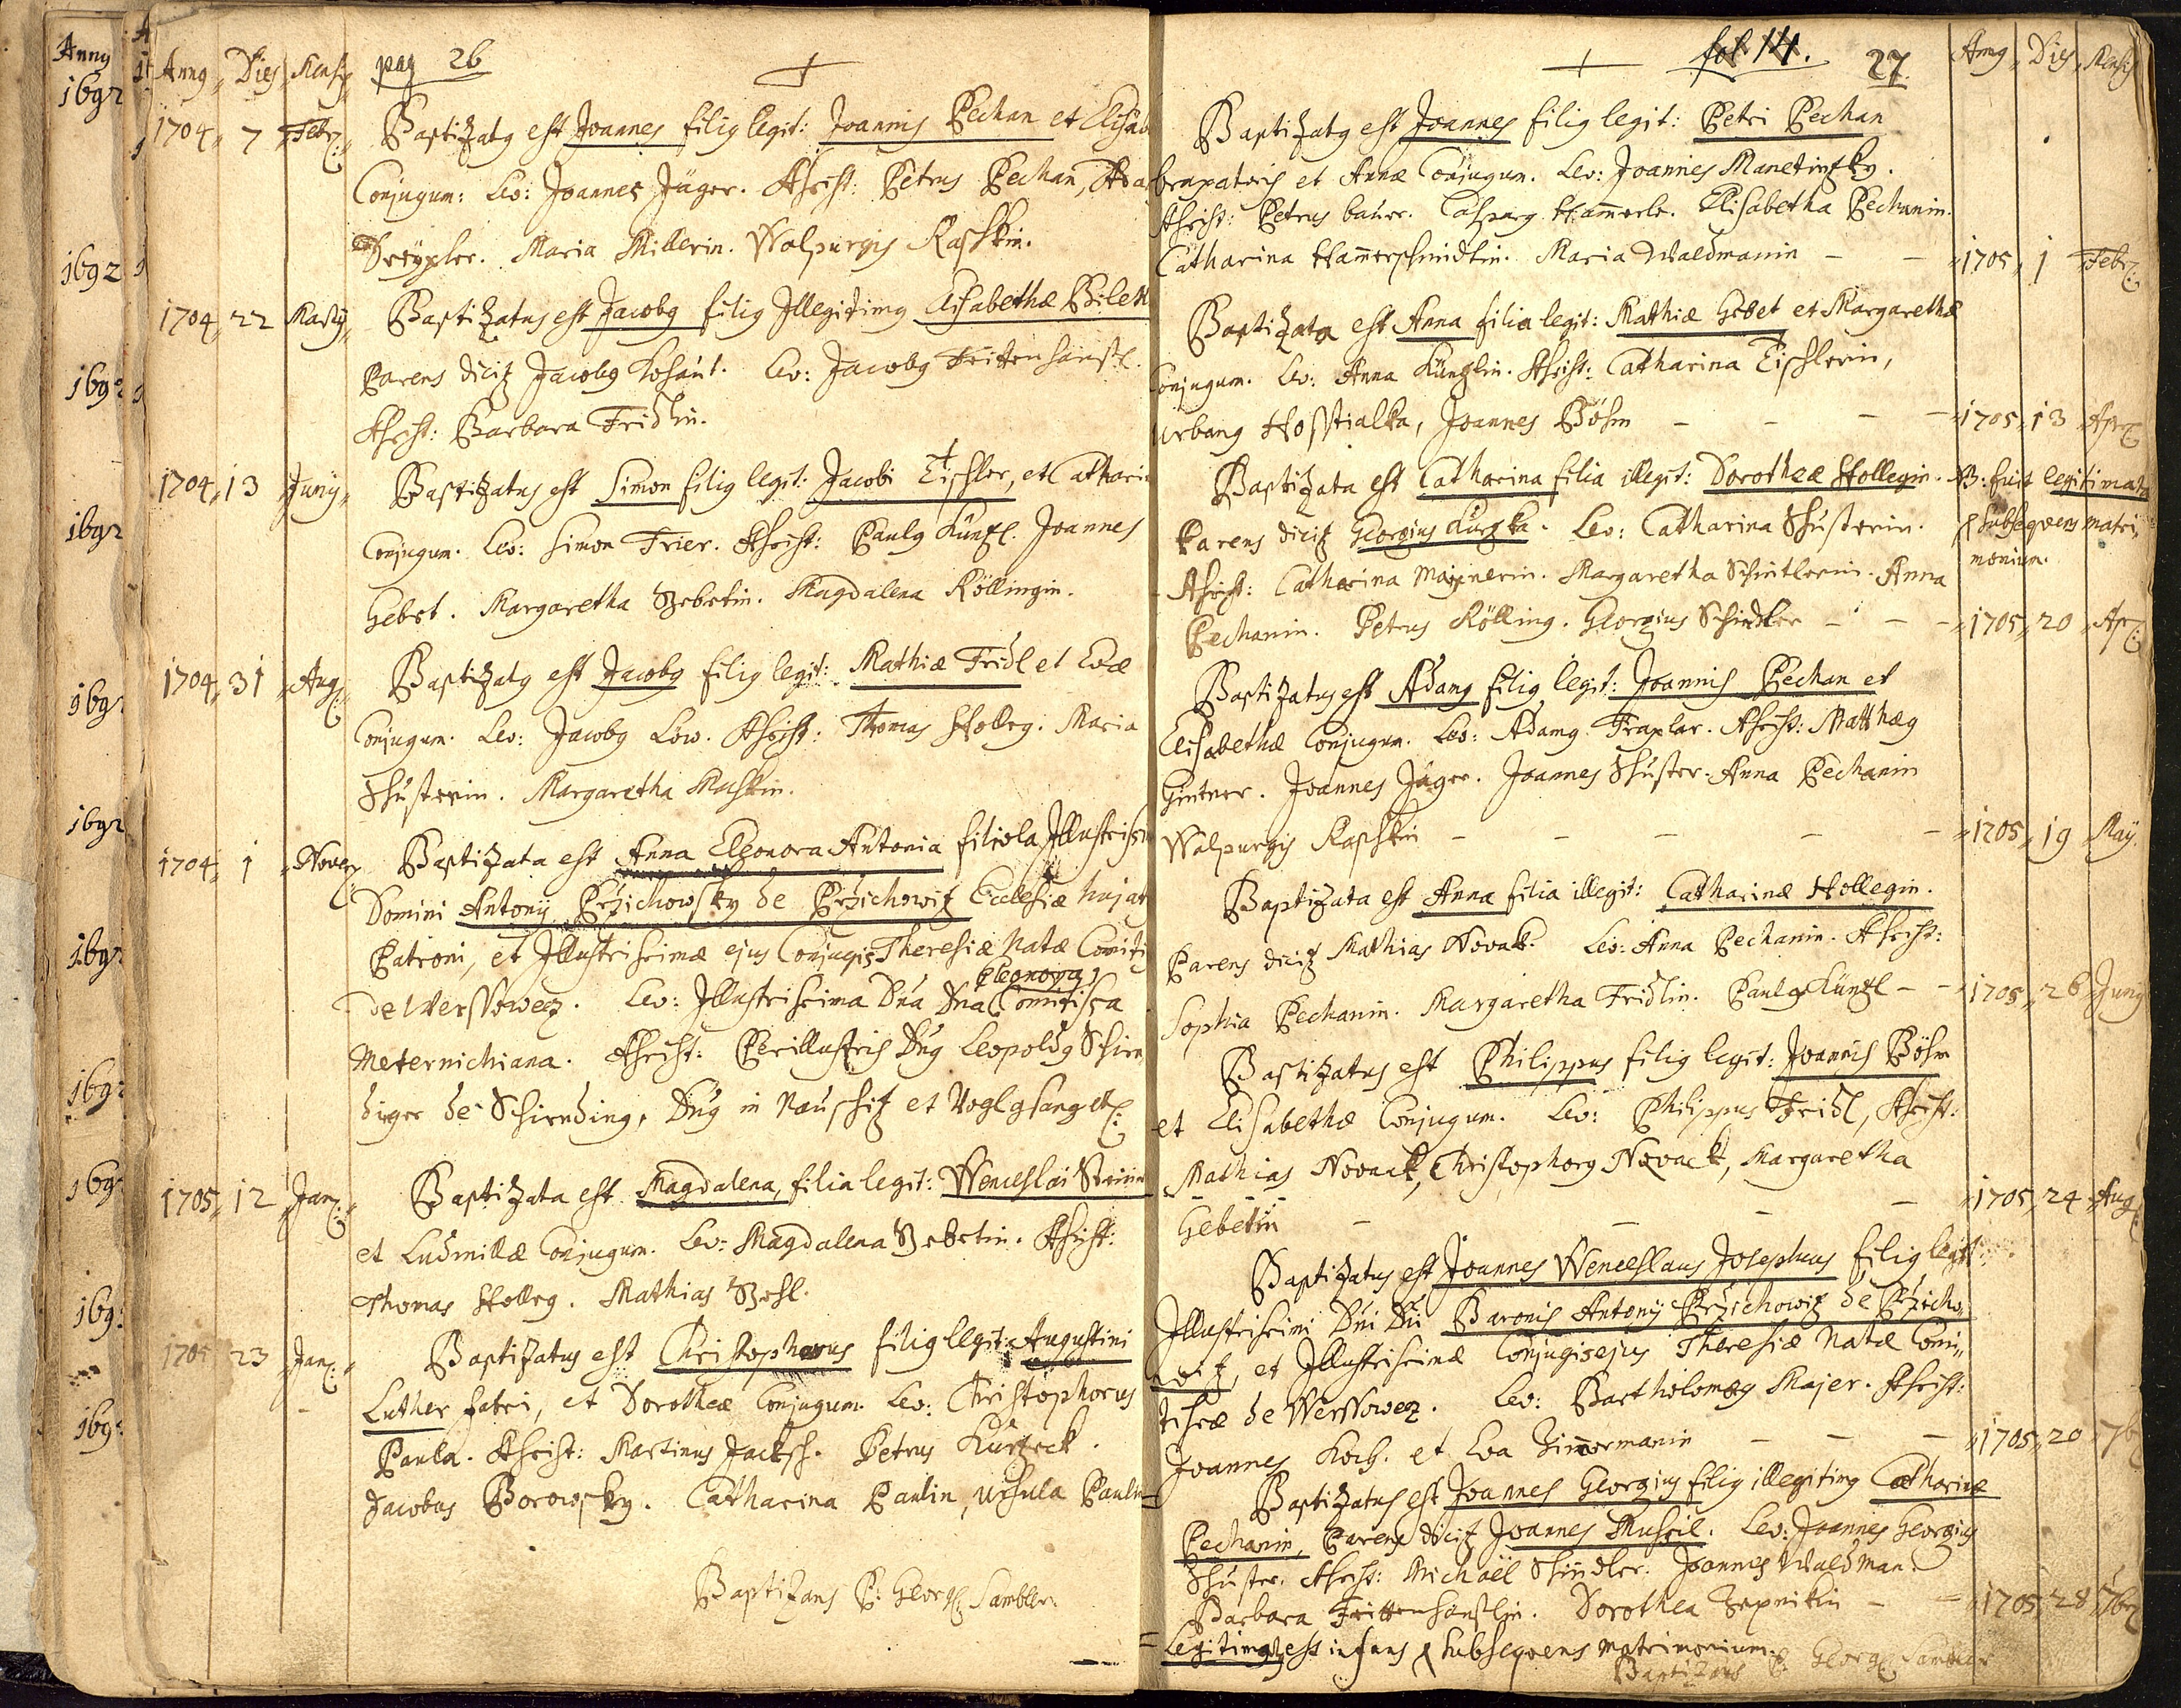 Anny
1692
1692
169
1692
169
1692
169
169
169
169
169
Anny Dies Mensis pag 26
1704 7 Febr: Baptizatus est Joannes filius legit: Joannis Pechan et Elisab
Conjugum: Lev: Joannes Jäger. Assist: Petrus Pechan, Ada
Maria Millerin. Walpurgis Raschkin.
1704 22 Martij Baptizatus est Jacobus filius Illegitimus Elisabethæ
Parens dicitur Jacobus Kohaut. Lev: Jacobus Frittenhänsl.
Assist: Barbara Fridlin.
1704 13 Junij Baptizatus est Simon filius legit: Jacobi Tischler, et Cathari
Conjugum. Lev: Simon Trier. Assist: Paulus Künzl. Joannes
Gebet. Margaretha Gebetin. Magdalena Röllingin.
1704 31 Aug: Baptizatus est Jacobus filius legit: Mathiæ Fridl et Evæ
Conjugum. Lev: Jacobus Löw. Assist: Thomas Holleg. Maria
Schusterin. Margaretha
1704 1 Novem Baptizata est Anna Eleonora Antonia filiola Illustrissi
Domini Antonij Przichowsky de Przichowitz Ecclesiæ hujat
Patroni, et Illustrissimæ ejus Conjugis Theresiæ Natæ Comiti
Eleonora
de Werssowecz. Lev: Illustrissima Dna Dna Comitissa
Meternichiana. Assist: Perillustris Dnus Leopoldus Schirn
dinger de Schirnding, Dnus in Nauschitz et Voglgsang etc:
1705 12 Jan: Baptizata est Magdalena, filia legit: Wenceslai
et Ludmillæ Conjugum. Lev: Magdalena Gebetin. Assist:
Thomas Holleg. Mathias
1705 23 Jan: Baptizatus est Christopherus filius legit: Augustini
Luther fabri, et Dorotheæ Conjugum. Lev: Christophorus
Paula. Assist: Martinus Jacksch. Petrus Kurzeck.
Jacobus Borowsky. Catharina Paulin, Ursula Paulin
Baptizans P: Georg: Sambler.
fol 14. 27. Anny Dies Mensis
Baptizatus est Joannes filius legit: Petri Pechan
et Annæ Conjugum. Lev: Joannes Manetinsky.
Assist: Petrus baur. Casparus Hammerle. Elisabetha Pechanin.
Catharina Hammerschmidtin. Maria Waldmanin 1705 1 Febr:
Baptizata est Anna filia legit: Mathiæ Gebet et Margarethæ
Conjugum. Lev: Anna Künzlin. Assist: Catharina Tischlerin,
Urbanus Hosstialka, Joannes Böhm 1705 13 Apr:
Baptizata est Catharina filia illegit: Dorotheæ Hollegin. NB: fuit legitimata
Parens dicitur Georgius Kurzka. Lev: Catharina Schusterin. p subsequens matri,
monium.
Assist: Catharina Majxnerin. Margaretha Schintlerin. Anna
Pechanin. Petrus Rölling. Georgius Schindler 1705 20 Apr:
Baptizatus est Adamus filius legit: Joannis Pechan et
Elisabethæ Conjugum. Lev: Adamus Traxlar. Assist: Matthæus
Gintner. Joannes Jäger. Joannes Schuster. Anna Pechanin
Walpurgis Raschkin 1705 19 Maij
Baptizata est Anna filia illegit: Catharinæ Hollegin.
Parens dicitur Mathias Novak. Lev: Anna Pechanin. Assist:
Sophia Pechanin. Margaretha Fridlin. Paulus Künzl 1705 26 Junij
Baptizatus est Philippus filius legit: Joannis Böhm
et Elisabethæ Conjugum. Lev: Philippus Fridl, Assist:
Mathias Novack, Christophorus Novack, Margaretha
Gebetin 1705 24 Aug:
Baptizatus est Joannes Wenceslaus Josephus filius legit:
Illustrissimi Dni Dni Baronis Antonij Przichowitz de Przicho,
witz, et Illustrissimæ Conjugis ejus Theresiæ Natæ Comi,
tissæ de Werssowecz. Lev: Bartholomæus Majer. Assist:
Joannes Koch. et Eva Zimmermanin 1705 20 7br
Baptizatus est Joannes Georgius filius illegitimus Catharinæ
Pechanin, Parens dicitur Joannes Mussil. Lev: Joannes Georgius
Schuster. Assist: Michaël Schindler. Joannes Waldman.
Barbara Frittenhänslin. Dorothea 1705 28 7br
Legitimatus est infans p subsequens matrimonium.
Baptizans P: Georg: Sambler